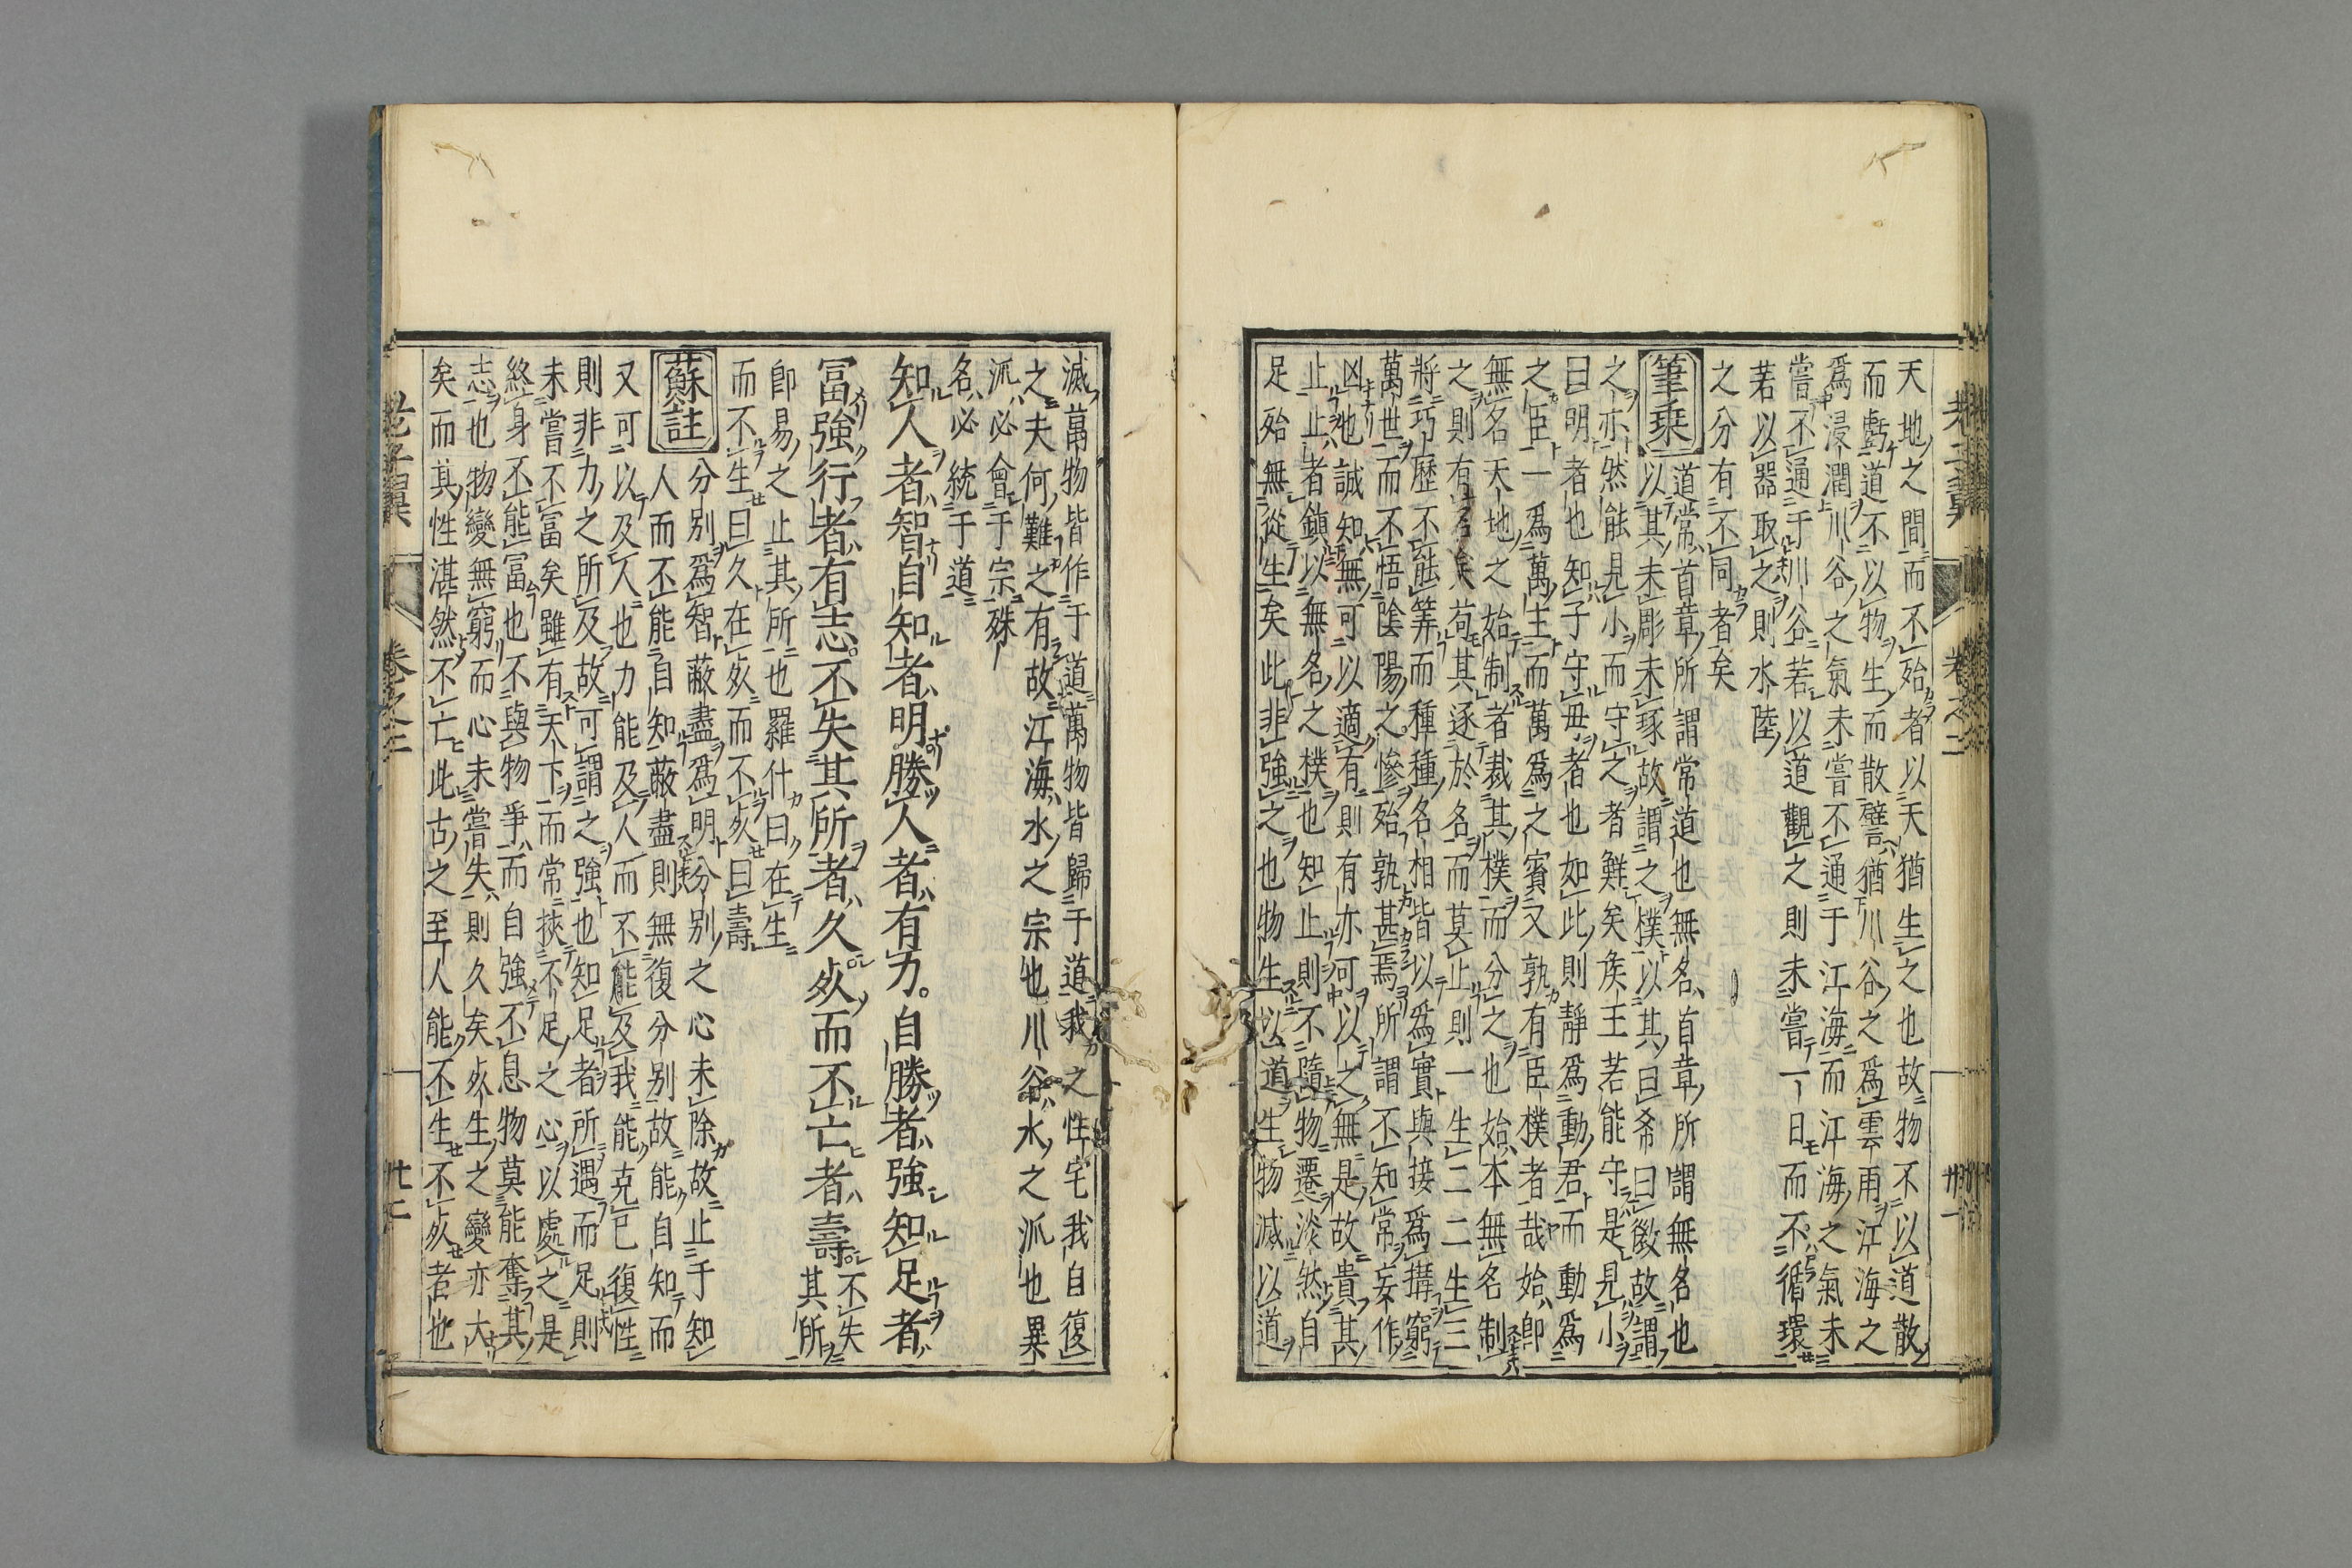 天地之間而不殆者以天猶生之也故物不以道散
而虧道不以物生而散譬猶川谷之爲雲雨江海之
爲浸潤川谷之氣未嘗不通于江海而江海之氣未
嘗不通于川谷若以道觀之則未嘗一日而不循環
若以器取之則水陸
之分有不同者矣
筆乗 道常首章所謂常道也無名首章所謂無名也
以其未彫未琢故謂之樸以其曰希曰微故謂
之亦然能見小而守之者鮮矣矦王若能守是見小
曰明者也知子守母者也如此則靜爲動君而動爲
之臣一爲萬主而萬爲之賓又孰有臣樸者哉始卽
無名天地之始制者裁其樸而分之也始本無名制
之則有名矣苟其逐於名而莫止則一生二二生三
將巧歷不能筭而種種名相皆以爲實與接爲搆窮
萬世而不悟陰陽之慘殆孰甚焉所謂不知常妄作
凶也誠知無可以適有則有亦可以之無是故貴其
止止者鎮以無名之樸也知止則不隨物遷淡然自
足殆無從生矣此非強之也物生以道生物滅以道
滅萬物皆作于道萬物皆歸于道我之性宅我自復
之夫何難之有故江海水之宗也川谷水之派也異
派必會于宗殊
名必統于道
知人者智自知者明勝人者有力自勝者強知足者
冨強行者有志不失其所者久死而不亡者壽 不失其所
卽易之止其所也羅什曰在生
而不生曰久在死而不死曰壽
蘇註 分别爲智蔽盡爲明分别之心未除故止于知
人而不能自知蔽盡則無復分别故能自知而
又可以及人也力能及人而不能及我能克己復性
則非力之所及故可謂之強也知足者所遇而足則
未嘗不冨矣雖有天下而常挾不足之心以處之是
終身不能冨也不與物爭而自強不息物莫能奪其
志也物變無窮而心未嘗失則久矣死生之變亦大
矣而其性湛然不亡此古之至人能不生不死者也
老子翼 卷之二 卅一
老子翼 卷之二 卅二